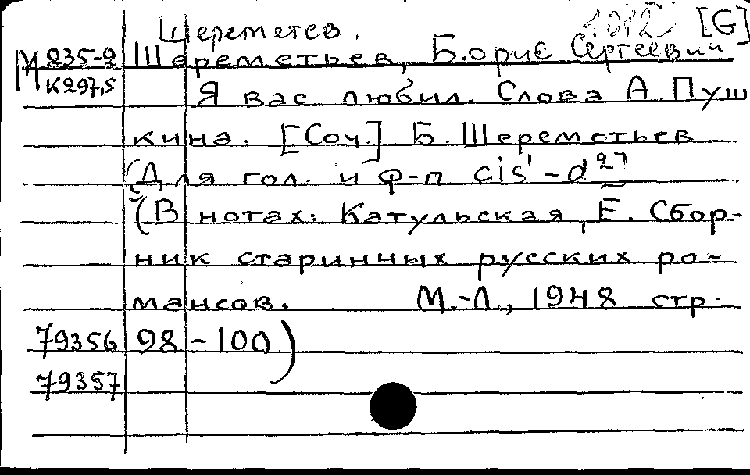 Шереметев. [G]
М 235-2 Шереметьев, Борис Сергеевич
К297,5 Я вас любил. Слова А. Пуш
кина. [Соч.] Б. Шереметьев
(Для гол. и ф-п cis¹-d²)
(В нотах: Катульская, Е. Сбор-
ник старинных русских ро-
мансов. М.-Л., 1948 стр.
79356 98-100)
79357